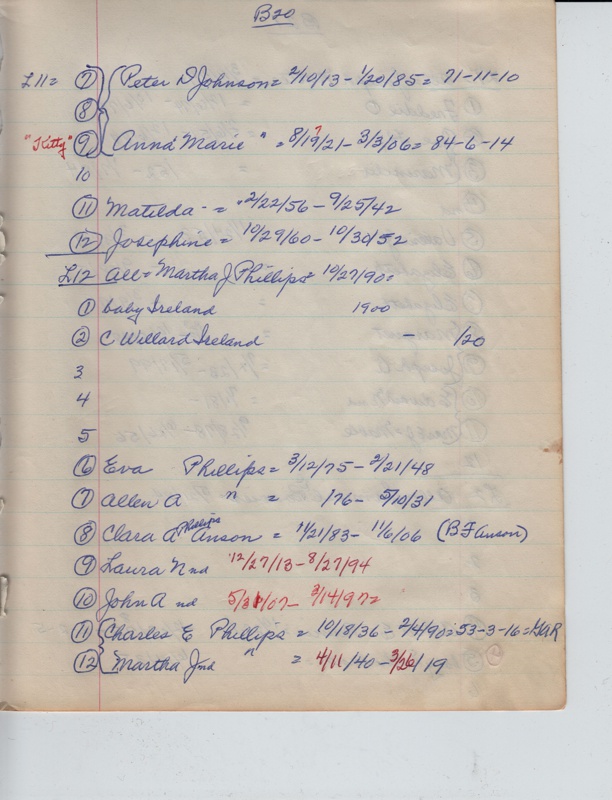 B20
L11= 7 Peter D Johnson = 2/10/13 - 1/20/85 = 71-11-10
8
"Kitty" 9 Anna Marie " = 8/19/21 - 3/3/06 = 84-6-14
?
10
11 Matilda - = 2/22/56 - 9/25/42
12 Josephine = 10/29/60 - 10/30/52
L12 All = Martha J Phillips = 10/27/90 =
1 baby Ireland 1900
2 C Willard Ireland - /20
3
4
5
6 Eva Phillips = 3/12/75 - 2/21/48
7 Allen A " = /76 - 5/10/31
8 Clara A Phillips Anson = 11/21/83 - 11/6/06 (B F Anson)
9 Laura N nd 12/27/13 - 8/27/94
10 John A nd 5/31/07 - 3/14/97=
11 Charles E Phillips = 10/18/36 - 2/4/90 = 53-3-16 = GAR
12 Martha J nd " = 4/11/40 - 3/26/19